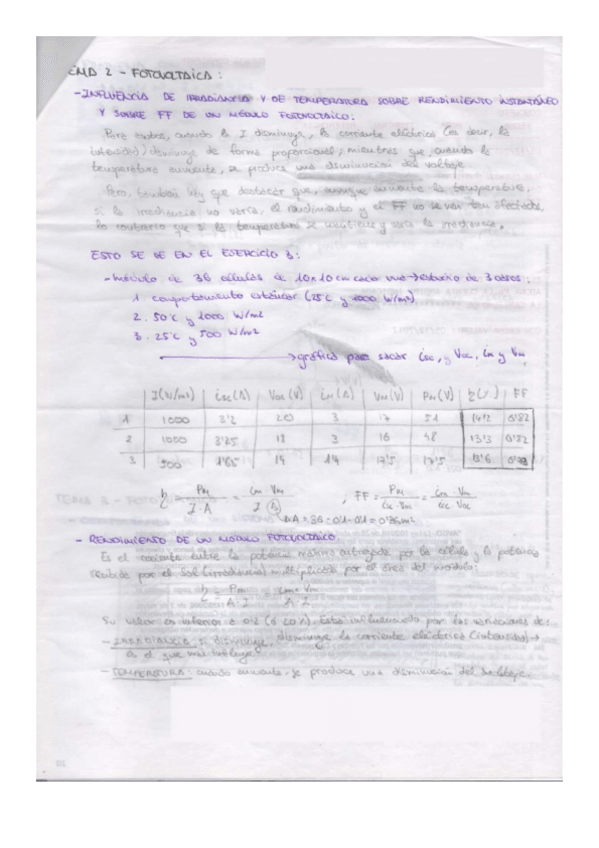 TEMA 2 - FOTOVOLTAICA:
- INFLUENCIA DE IRRADIANCIA Y DE TEMPERATURA SOBRE RENDIMIENTO INSTANTÁNEO
Y SOBRE FF DE UN MÓDULO FOTOVOLTAICO:
cuando la I disminuye, la corriente eléctrica (es decir, la
intensidad) disminuye de forma proporcional, mientras que, cuando la
temperatura aumenta, se produce una disminución del voltaje.
Pero, también hay que destacar que, aunque aumente la temperatura,
si la irradiancia no varía, el rendimiento y el FF no se ven tan afectados
lo contrario que si la temperatura se mantiene y varía la irradiancia.
ESTO SE VE EN EL EJERCICIO 3:
- módulo de 36 células de 10x10cm cada una → estudio de 3 casos:
1. comportamiento estándar (25ºC y 1000 W/m2)
2. 50ºC y 1000 W/m2
3. 25ºC y 500 W/m2
→ gráfica para sacar isc, y Voc, im y Vm
I(W/m2) isc(A) Voc(V) im(A) Vm(V) Pm(V) η(%) FF
1 1000 3'2 20 3 17 51 14'2 0'82
2 1000 3'25 18 3 16 48 13'3 0'82
3 500 1'65 19 1'4 17'5 17'5 13'6
η = Pm / I·A = im·Vm / I·A ; FF = Pm / isc·Voc = im·Vm / isc·Voc
→ A = 36·0'1·0'1 = 0'36m2
- RENDIMIENTO DE UN MÓDULO FOTOVOLTAICO.
Es el cociente entre la potencia máxima entregada por la célula y la potencia
recibida por el Sol (irradiancia) multiplicada por el área del módulo:
η = Pm / A·I = im·Vm / A·I
Su valor es inferior a 0'2 (ó 20%). Está influenciado por las variaciones de:
- IRRADIANCIA: si disminuye, disminuye la corriente eléctrica (intensidad) →
es el que más influye.
- TEMPERATURA: cuando aumenta, se produce una disminución del voltaje.